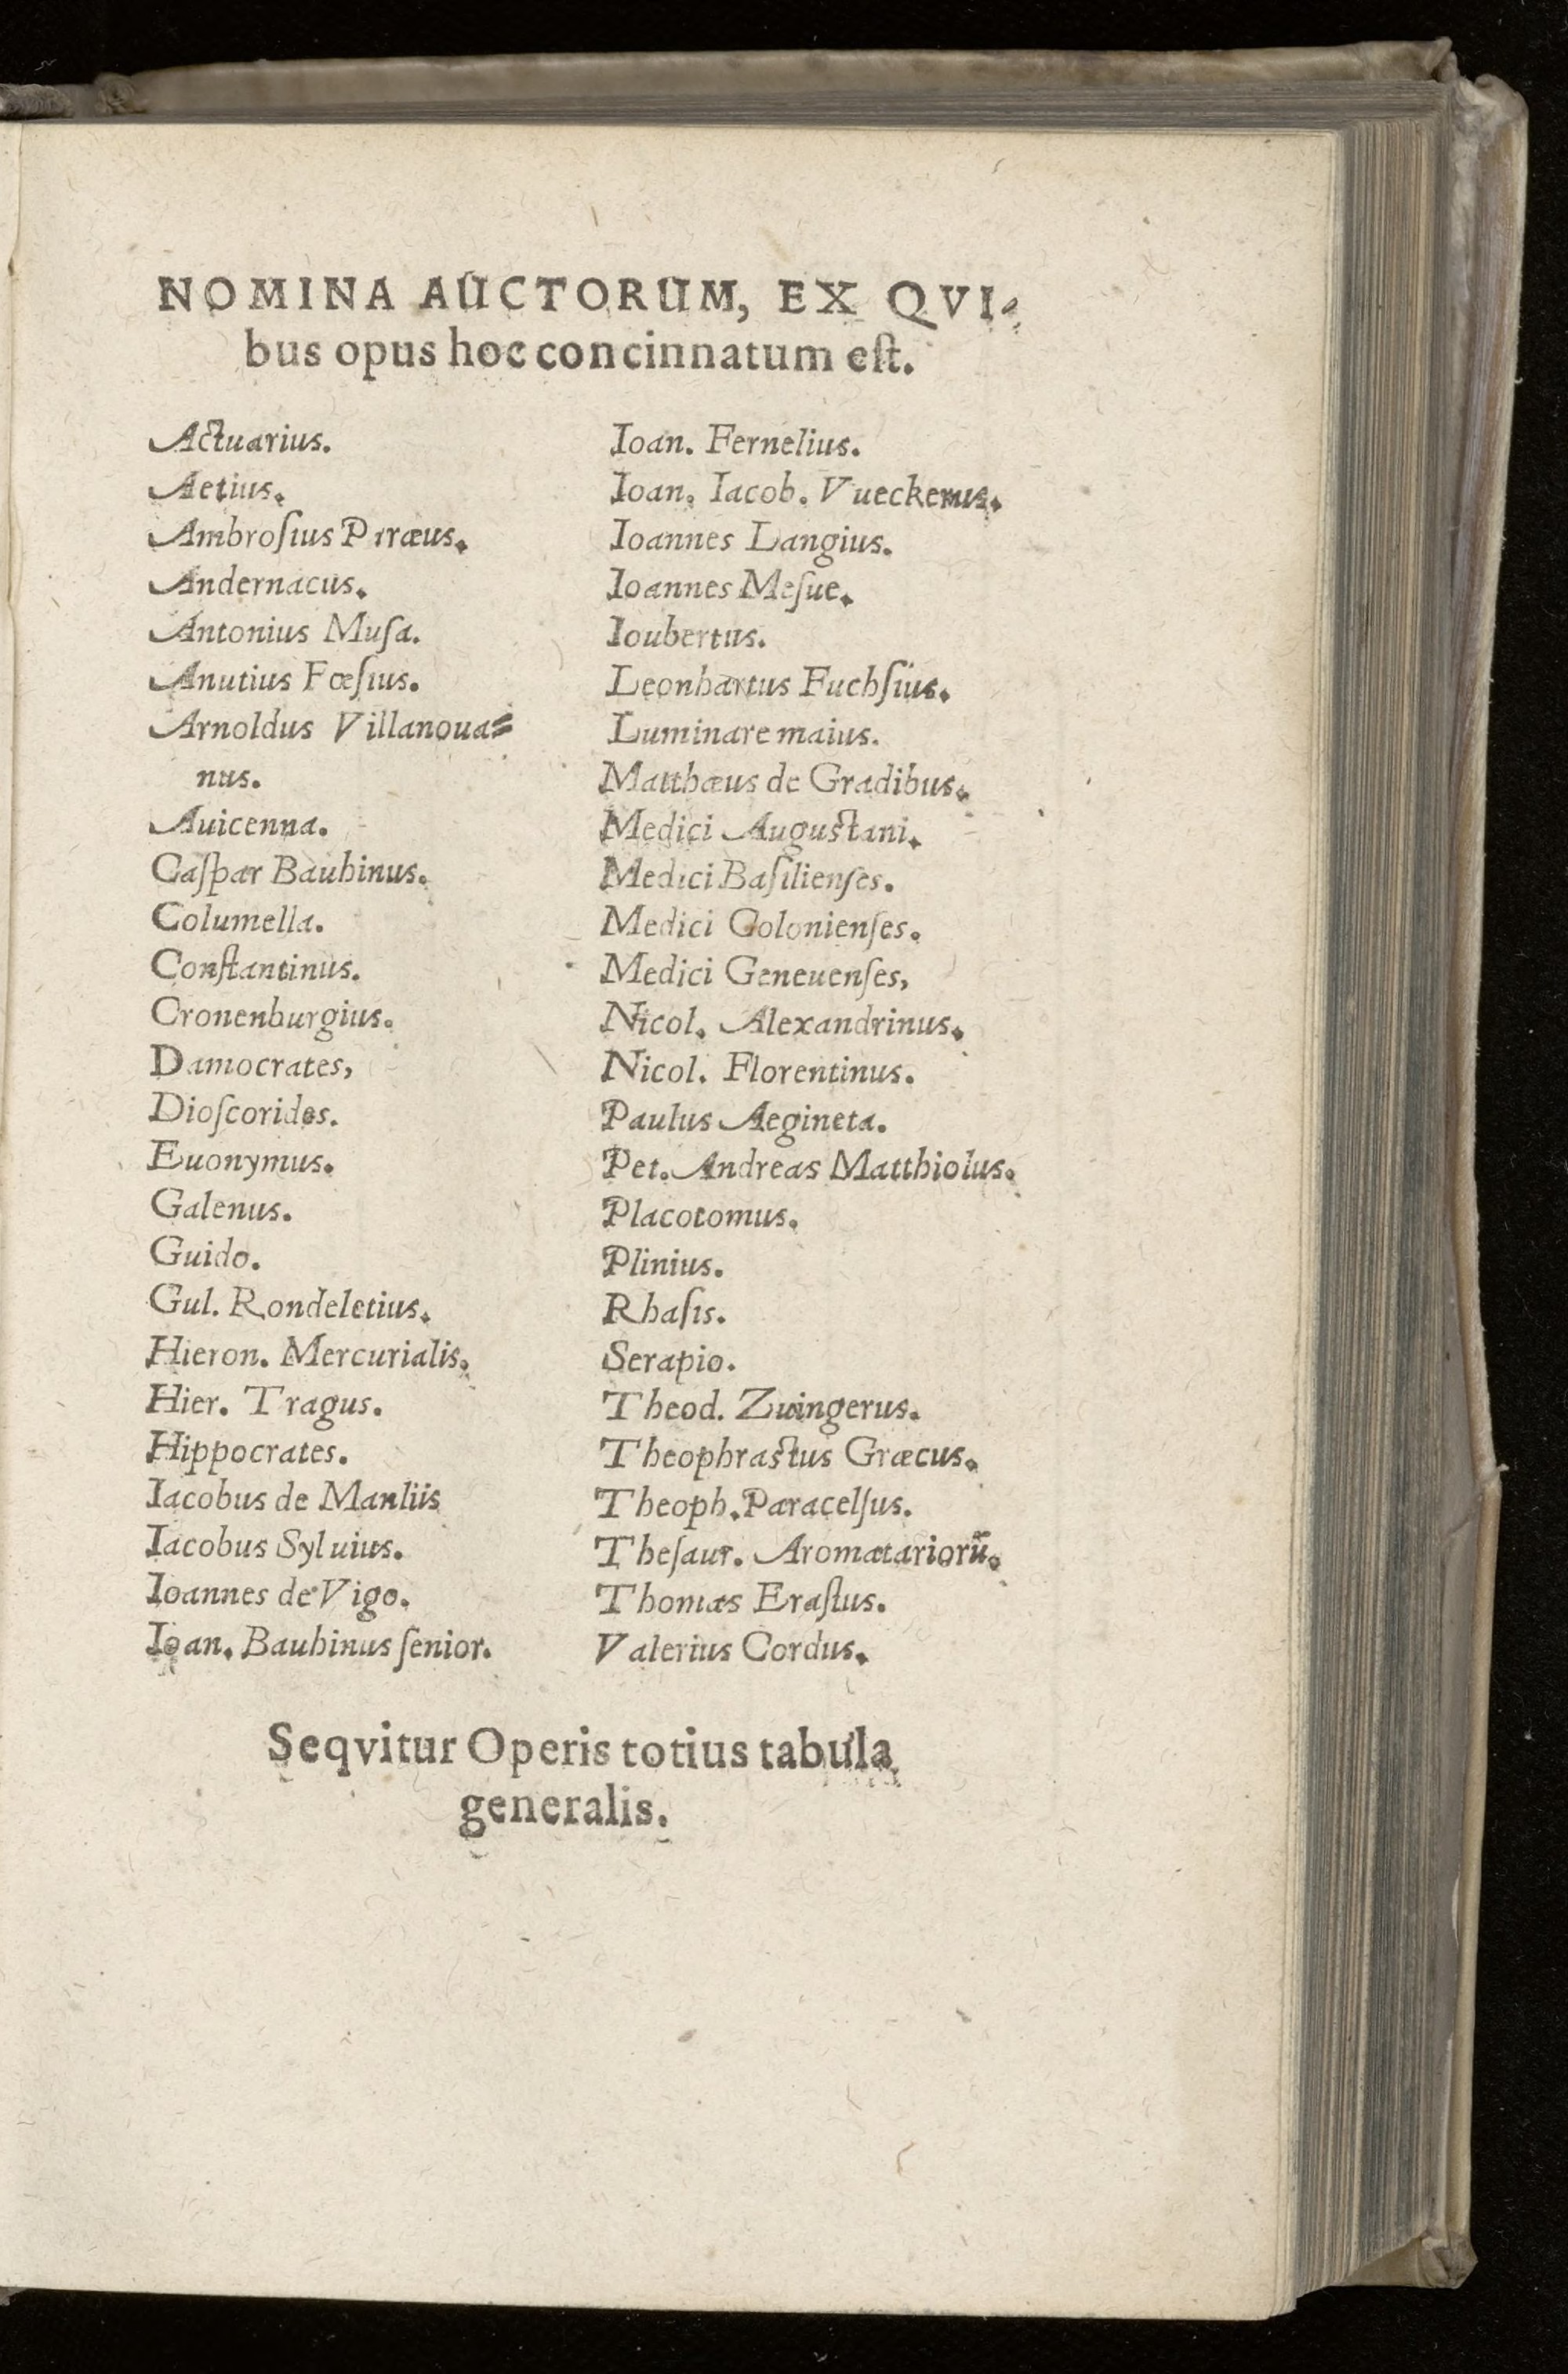 NOMINA AUCTORUM, EX QVI-
bus opus hoc concinnatum eſt.
Actuarius.
Aetius.
Ambroſius Paræus.
Andernacus.
Antonius Muſa.
Anutius Fœſius.
Arnoldus Villanoua-
nus.
Auicenna.
Caſpar Bauhinus.
Columella.
Conſtantinus.
Cronenburgius.
Damocrates,
Dioſcorides.
Euonymus.
Galenus.
Guido.
Gul. Rondeletius.
Hieron. Mercurialis.
Hier. Tragus.
Hippocrates.
Iacobus de Manliis
Iacobus Syluius.
Ioannes de Vigo.
Ioan. Bauhinus ſenior.
Ioan. Fernelius.
Ioan. Iacob. Vueckerus.
Ioannes Langius.
Ioannes Meſue.
Ioubertus.
Leonhartus Fuchſius.
Luminare maius.
Matthæus de Gradibus.
Medici Auguſtani.
Medici Baſilienſes.
Medici Colonienſes.
Medici Geneuenſes,
Nicol. Alexandrinus.
Nicol. Florentinus.
Paulus Aegineta.
Pet. Andreas Matthiolus.
Placotomus.
Plinius.
Rhaſis.
Serapio.
Theod. Zuingerus.
Theophraſtus Græcus.
Theoph. Paracelſus.
Theſaur. Aromatariorũ.
Thomas Eraſtus.
Valerius Cordus.
Seqvitur Operis totius tabula
generalis.